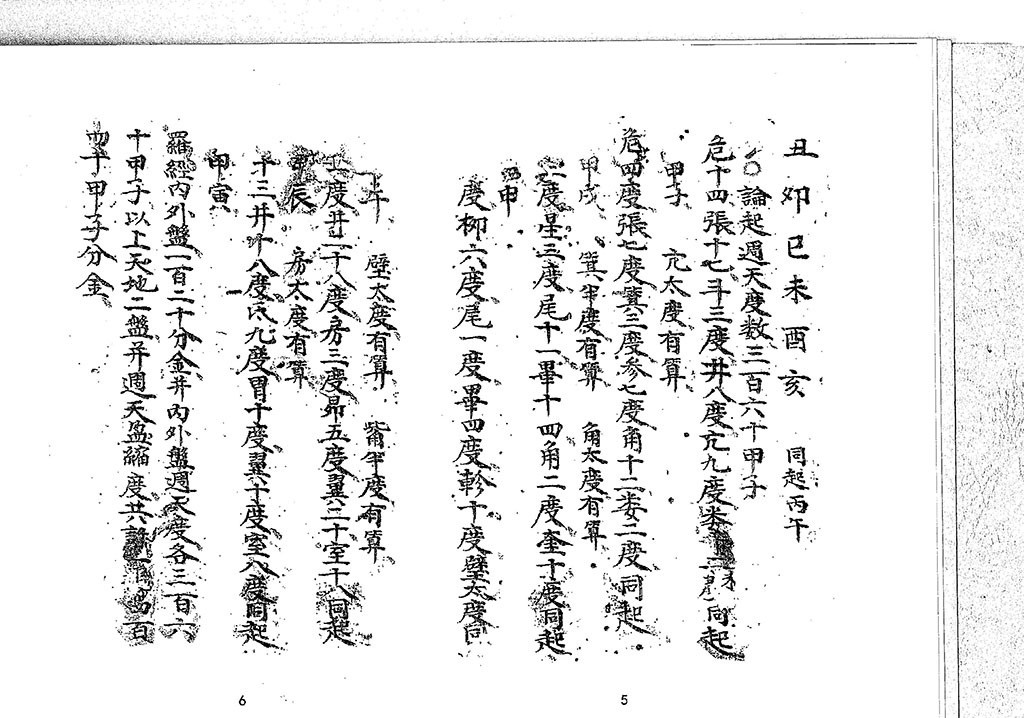 丑卯巳未酉亥 同起丙午
○論起週天度数三百六十甲子
危十四張十七斗三度井八度亢九度娄 同起
甲子 亢太度有算
危四度張七度箕三度参七度角十二娄二度同起
甲戌 箕半度有算 角太度有算
二度星三度尾十一畢十四角二度奎十度同起
申
度柳六度尾一度畢四度軫十度壁太度同
5
午 壁太度有算 觜半度有算
度井二十八度房三度昴五度翼二十室十八同起
甲辰 房太度有算
十三井十八度氐九度胃十度翼十度室八度同起
甲寅
羅經内外盤一百二十分金并内外盤週天度各三百六
十甲子以上天地二盤并週天盈縮度共 百
四十甲子分金
6